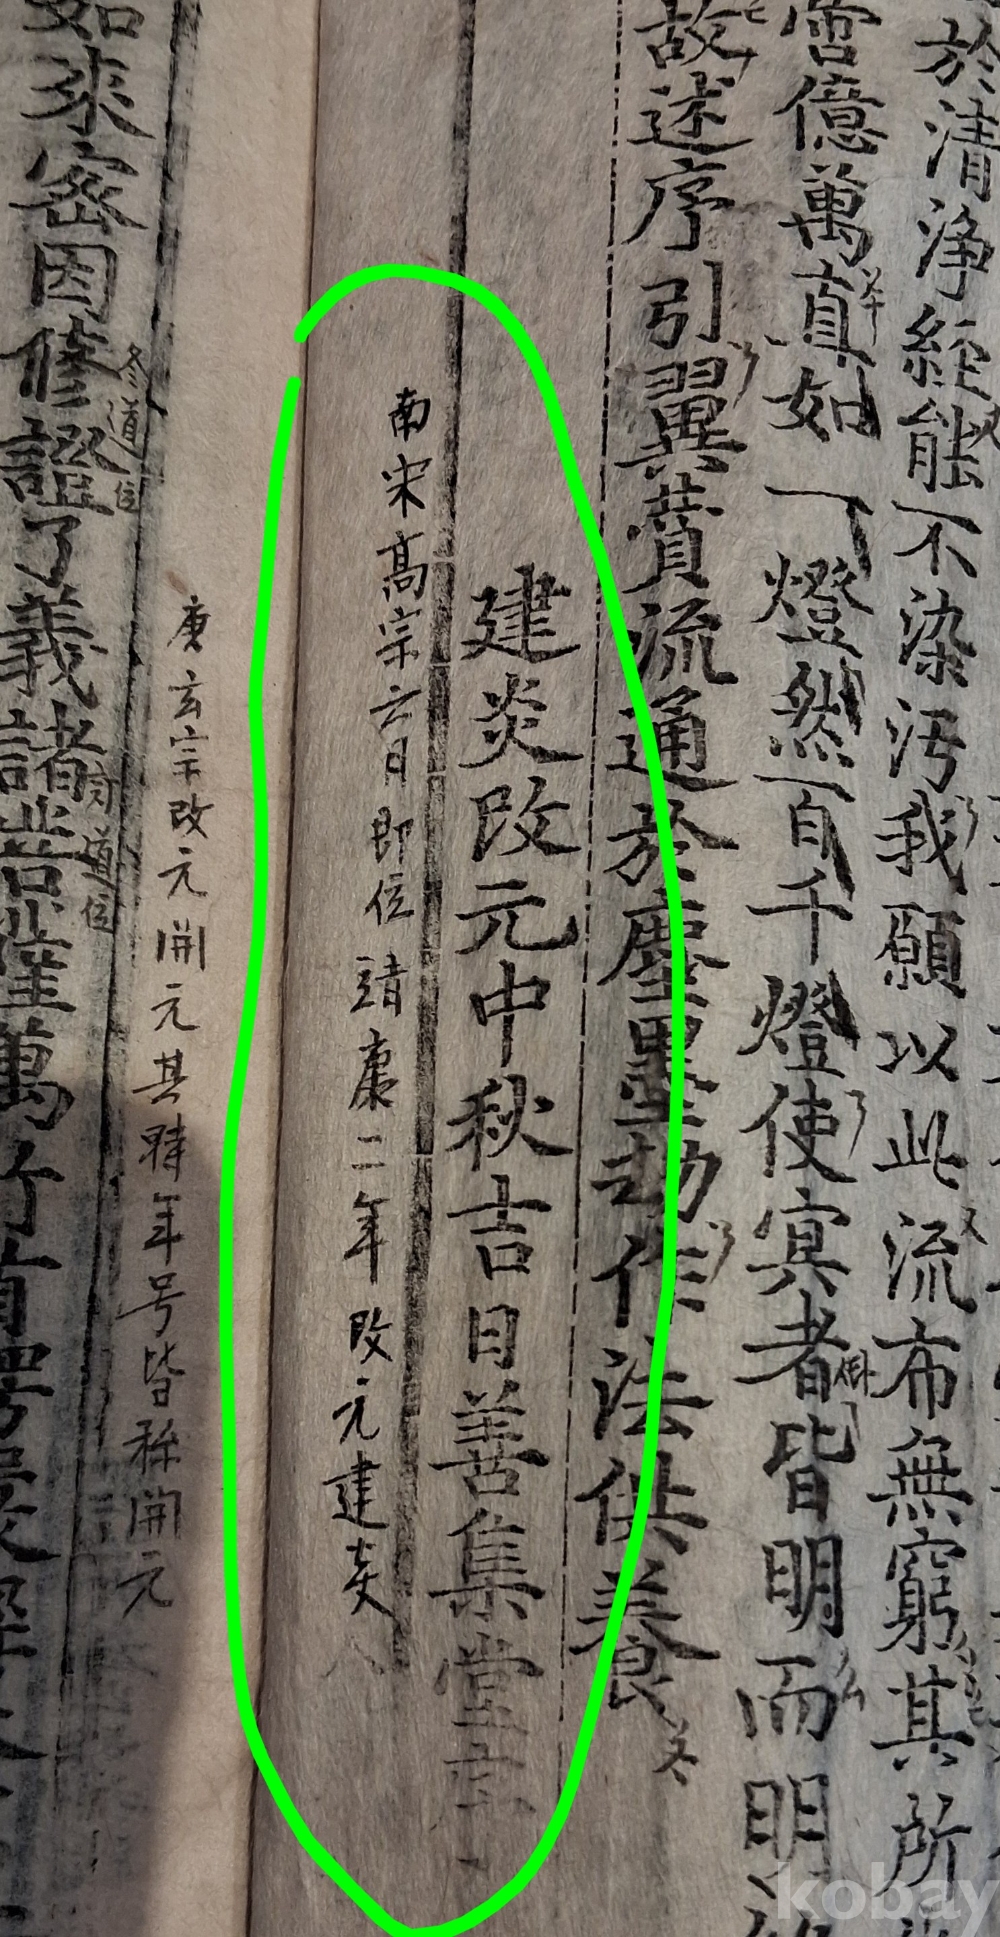 於清淨經能不染汚我願以此流布無窮其所
當億萬真如一燈然百千燈使㝠者皆明而明
故述序引翼賛流通於塵墨劫作法供養
建炎改元中秋吉日善集堂
南宋高宗六月即位靖康二年改元建炎
唐玄宗改元開元其時年号皆称開元
如來密因修證了義諸菩薩萬行首楞嚴
修道位
kobay